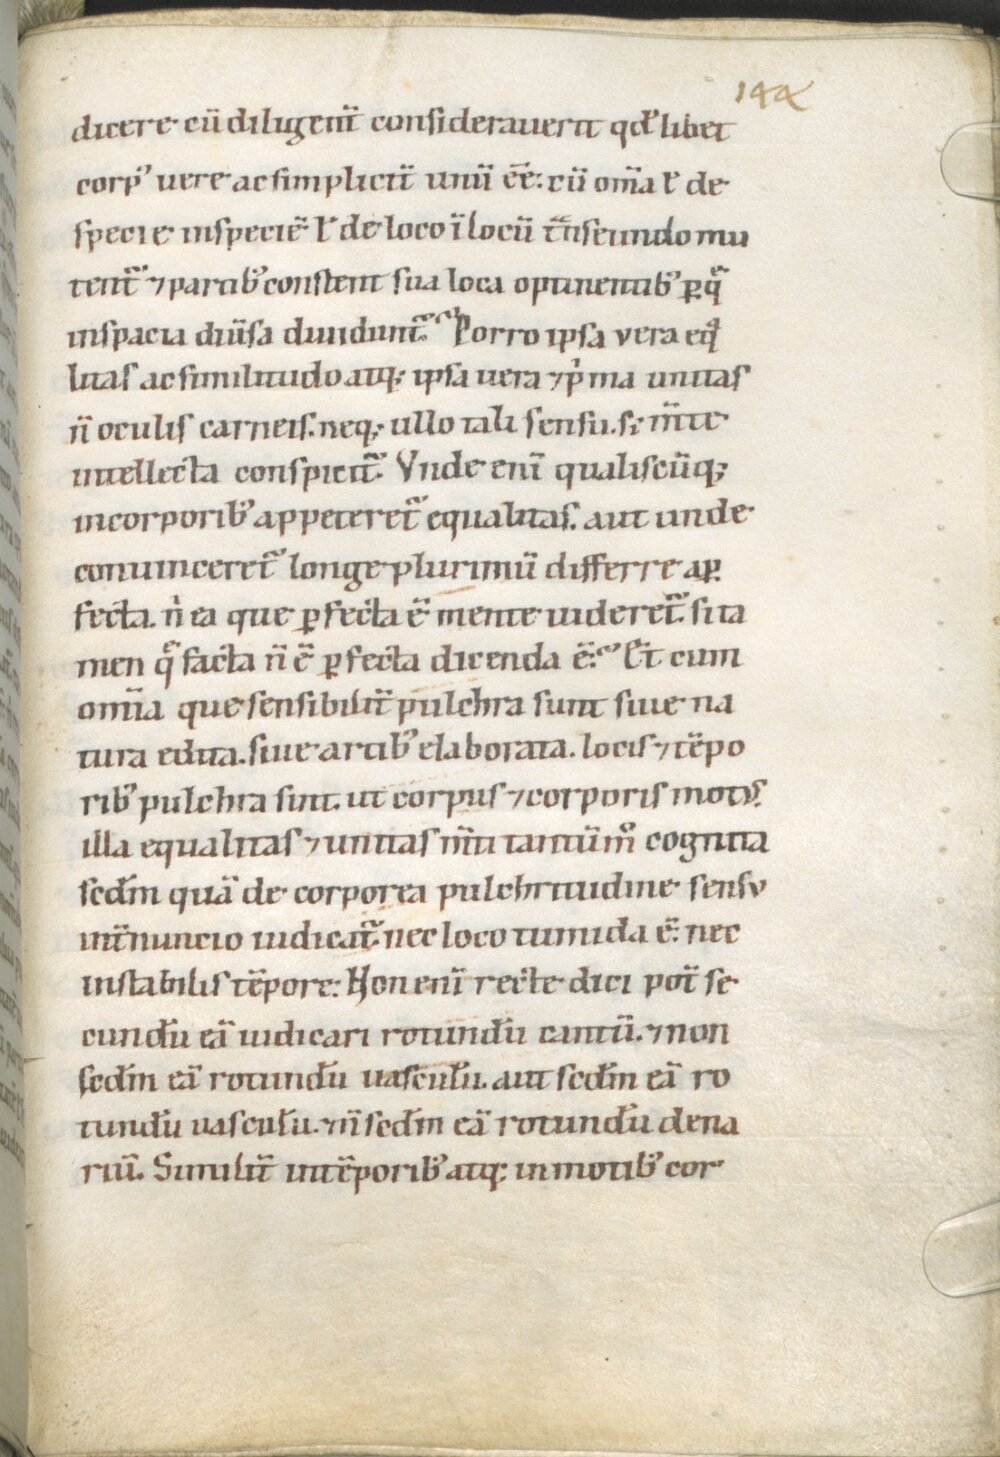 144
dicere cū diligent̄ considerauerit qđ libet
corpꝰ uere ac simplicit̄ unū ēē: cū om̄a ł de
specie in speciē ł de loco ī locū tn̄seundo mu
tent᷑ ⁊ partibꝰ constent sua loca optinentibꝰ ꝑ q̄
in spacia diūsa diuidunt᷑. Porro ipsa vera eq̄
litas ac similitudo atqꝫ ipsa uera ⁊ pⁱma unitas
n̄ oculis carneis. neqꝫ ullo tali sensu. sꝫ m̄te
intellecta conspicit᷑. Vnde enī qualiscūqꝫ
in corporibꝰ appeteret᷑ equalitas. aut unde
conuinceret᷑ longe plurimū differre a ꝑ
fecta. nⁱ ea que ꝑfecta ē mente uideret᷑. si ta
men q̄ facta n̄ ē ꝑfecta dicenda ē: Et cum
om̄ia que sensibilit̄ pulchra sunt siue na
tura edita. siue artibꝰ elaborata. locis ⁊ tēpo
ribꝰ pulchra sint. ut corpus ⁊ corporis motus.
illa equalitas ⁊ unitas m̄ti tantūm̊ cognita
secđm quā de corporea pulchritudine sensu
int̄nuncio iudicat᷑. nec loco tumida ē. nec
instabilis tēpore: Non enī recte dici pot̄ se
cunđu eā iudicari rotunđu cantū. ⁊ non
secđm eā rotunđu uascułu. aut secđm eā ro
tunđu uascułu. ⁊ n̄ secđm eā rotunđu dena
riū. Similit̄ in tēporibꝰ atqꝫ in motibꝰ cor